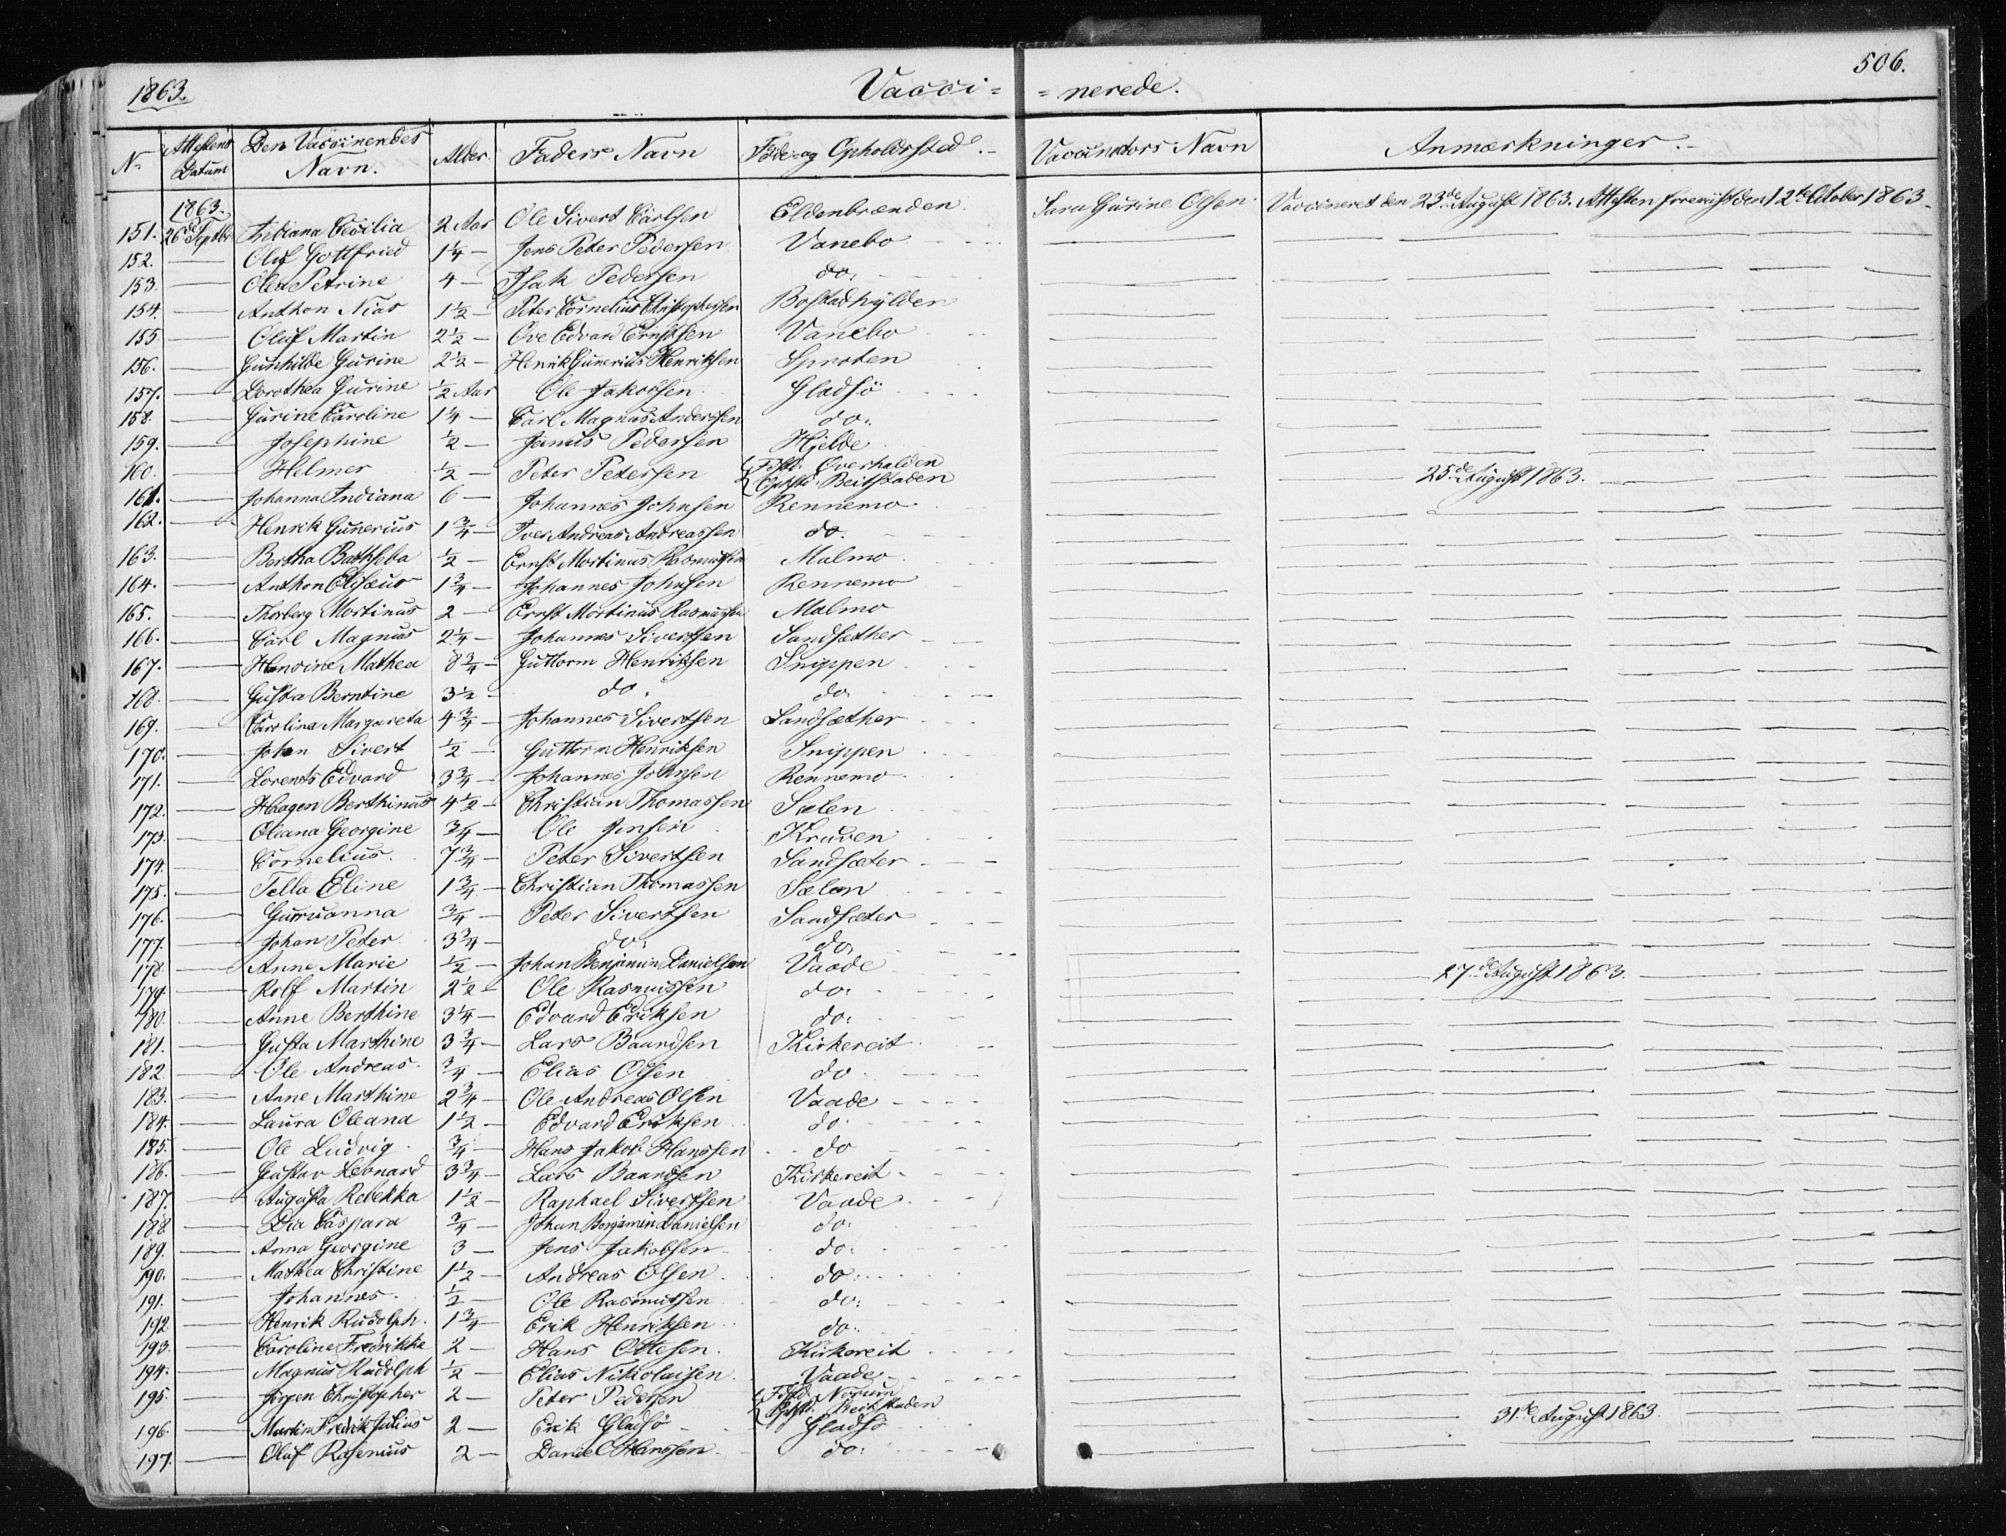 1863. Vacci= =nerede. 506.
No Attestens Datum Den Vaccinendes Navn. Alder. Faders Navn Føde- og Opholdssted.- Vaccinators Navn Anmærkninger.-
1863.
151. 26de Septbr Indiana Cecilia 2 Aar Ole Sivert Carlsen Eldenbrænden. Sara Gurine Olsen. Vaccineret den 23de August 1863. Attesten foreviist den 12te October 1863.
152. — Oluf Gottfried 1 1/4 — Jens Peter Pedersen Vanebo
153. — Olea Petrine 4 — Isak Pedersen do.
154. — Anthon Nias 1 1/2 — Peter Cornelius Christophersen Bostadhylden
155. — Oluf Martin 2 1/2 — Ove Edvard Ernstsen Vanebo
156. — Gunhilde Gurine 2 1/2 — Henrik Gunerius Henriksen Sproten
157. — Dorothea Gurine 1/2 Aar Ole Jakobsen Gladsö
158. — Gurine Caroline 1 1/4 — Carl Magnus Anderssen do.
159. — Josephine 1/2 — Jamus Pedersen Hjelde
160. — Helmer 1/2 — Peter Petersen Fstd. Överhalden Opstd. Beitstaden 25de August 1863.
161. — Johanna Indiana 6 — Johannes Johnsen Rennemo
162. — Henrik Gunerius 1 3/4 — Iver Andreas Andreassen do.
163. — Bertha Bathseba 1/2 — Ernst Mortinus Rasmussen Malmo
164. — Anthon Elisæus 1 3/4 — Johannes Johnsen Rennemo
165. — Thorberg Mortinus 2 — Ernst Mortinus Rasmussen Malmo
166. — Carl Magnus 2 1/4 — Johannes Sivertsen Sandsæther
167. — Hansine Mathea 8 3/4 — Guttorm Henriksen Snippen
168. — Gusta Berntine 3 1/2 — do. do.
169. — Carolina Margareta 4 3/4 — Johannes Sivertsen Sandsæther
170. — Johan Sivert 1/2 — Guttorm Henriksen Snippen
171. — Lorents Edvard 3 3/4 — Johannes Johnsen Rennemo
172. — Haagen Berthinus 4 1/2 — Christian Thomassen Sælen
173. — Oleana Georgine 3/4 — Ole Jensen Kraaen
174. — Cornelius. 7 3/4 — Peter Sivertsen Sandsæter
175. — Tella Eline 1 3/4 — Christian Thomassen Sælen
176. — Guruanna 3/4 — Peter Sivertsen Sandsæter
177. — Johan Peter 3 3/4 — do. do.
178. — Anne Marie 1/2 — Johan Benjamin Danielsen Vaade 27de August 1863.
179. — Rolf Martin 2 1/2 — Ole Rasmussen do.
180. — Anne Berthine 3 1/4 — Edvard Eriksen do.
181. — Gusta Marthine 3 3/4 — Lars Baardsen Kirkereit
182. — Ole Andreas. 3/4 — Elias Olsen do.
183. — Anne Marthine 2 3/4 — Ole Andreas Olsen Vaade
184. — Laura Oleana 1 1/2 — Edvard Eriksen do.
185. — Ole Ludvig 3/4 — Hans Jakob Hanssen do
186. — Gustav Leonard 3 3/4 — Lars Baardsen Kirkereit
187. — Augusta Rebekka 1 1/2 — Raphael Sivertsen Vaade
188. — Dia Caspara 3/4 — Johan Benjamin Danielsen do.
189. — Anna Georgine 3 — Jens Jakobsen do.
190. — Mathea Christine 1 1/2 — Andreas Olsen do.
191. — Johannes. 1/2 — Ole Rasmussen do.
192. — Henrik Rudolph. 1 3/4 — Erik Henriksen do.
193. — Caroline Fredrikke 2 — Hans Ottesen. Kirkereit
194. — Magnus Rudolph 1/2 — Elias Nikolaisen. Vaade
195. — Jörgen Christopher 2 — Peter Pedersen Fstd. Norum Opstd. Beitstaden
196. — Martin Fredrik Julius 2 — Erik Gladsö Gladsö 31te August 1863.
197. — Oluf Rasenius 2 — Daniel Hanssen. do.